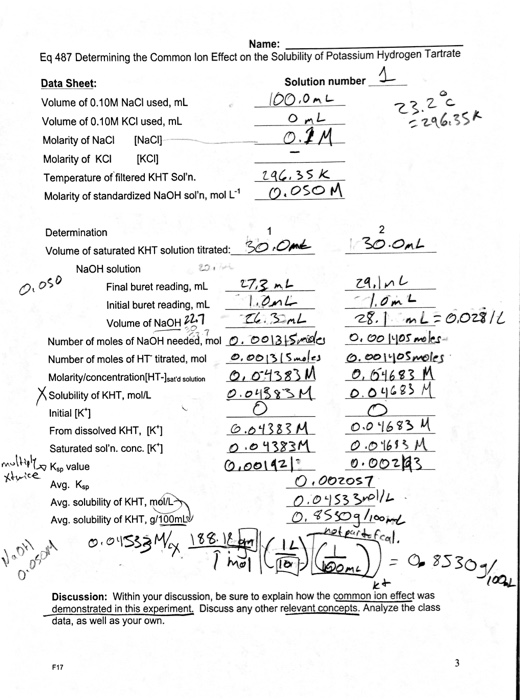 Name:
Eq 487 Determining the Common Ion Effect on the Solubility of Potassium Hydrogen Tartrate
Data Sheet: Solution number 1
Volume of 0.10M NaCl used, mL 100.0mL
23.2°C
Volume of 0.10M KCl used, mL 0 mL
=296.35K
Molarity of NaCl [NaCl] 0.1M
Molarity of KCl [KCl] -
Temperature of filtered KHT Sol'n. 296.35K
Molarity of standardized NaOH sol'n, mol L-1 0.050M
Determination 1 2
Volume of saturated KHT solution titrated: 30.0mL 30.0mL
NaOH solution
0.050
Final buret reading, mL 27.3 mL 29.1mL
Initial buret reading, mL 1.0mL 1.0mL
Volume of NaOH 22.7 26.3mL 28.1 mL=0.0281L
Number of moles of NaOH needed, mol 0.001315moles 0.001405moles
Number of moles of HT- titrated, mol 0.001315moles 0.001405moles
Molarity/concentration[HT-]sat'd solution 0.04383M 0.04683M
X Solubility of KHT, mol/L 0.04383M 0.04683M
Initial [K+] 0 0
From dissolved KHT, [K+] 0.04383M 0.04683M
Saturated sol'n. conc. [K+] 0.04383M 0.04683M
multiply
xtwice
Ksp value 0.001921 0.002193
Avg. Ksp 0.002057
Avg. solubility of KHT, mol/L 0.04533mol/L
Avg. solubility of KHT, g/100mL 0.8530g/100mL
not part of cal.
NaOH
0.050M
0.04533M x 188.18gm / 1 mol (1L / 10) (1 / 100mL) = 0.8530g/100mL
Discussion: Within your discussion, be sure to explain how the common ion effect was
demonstrated in this experiment. Discuss any other relevant concepts. Analyze the class
data, as well as your own.
F17 3